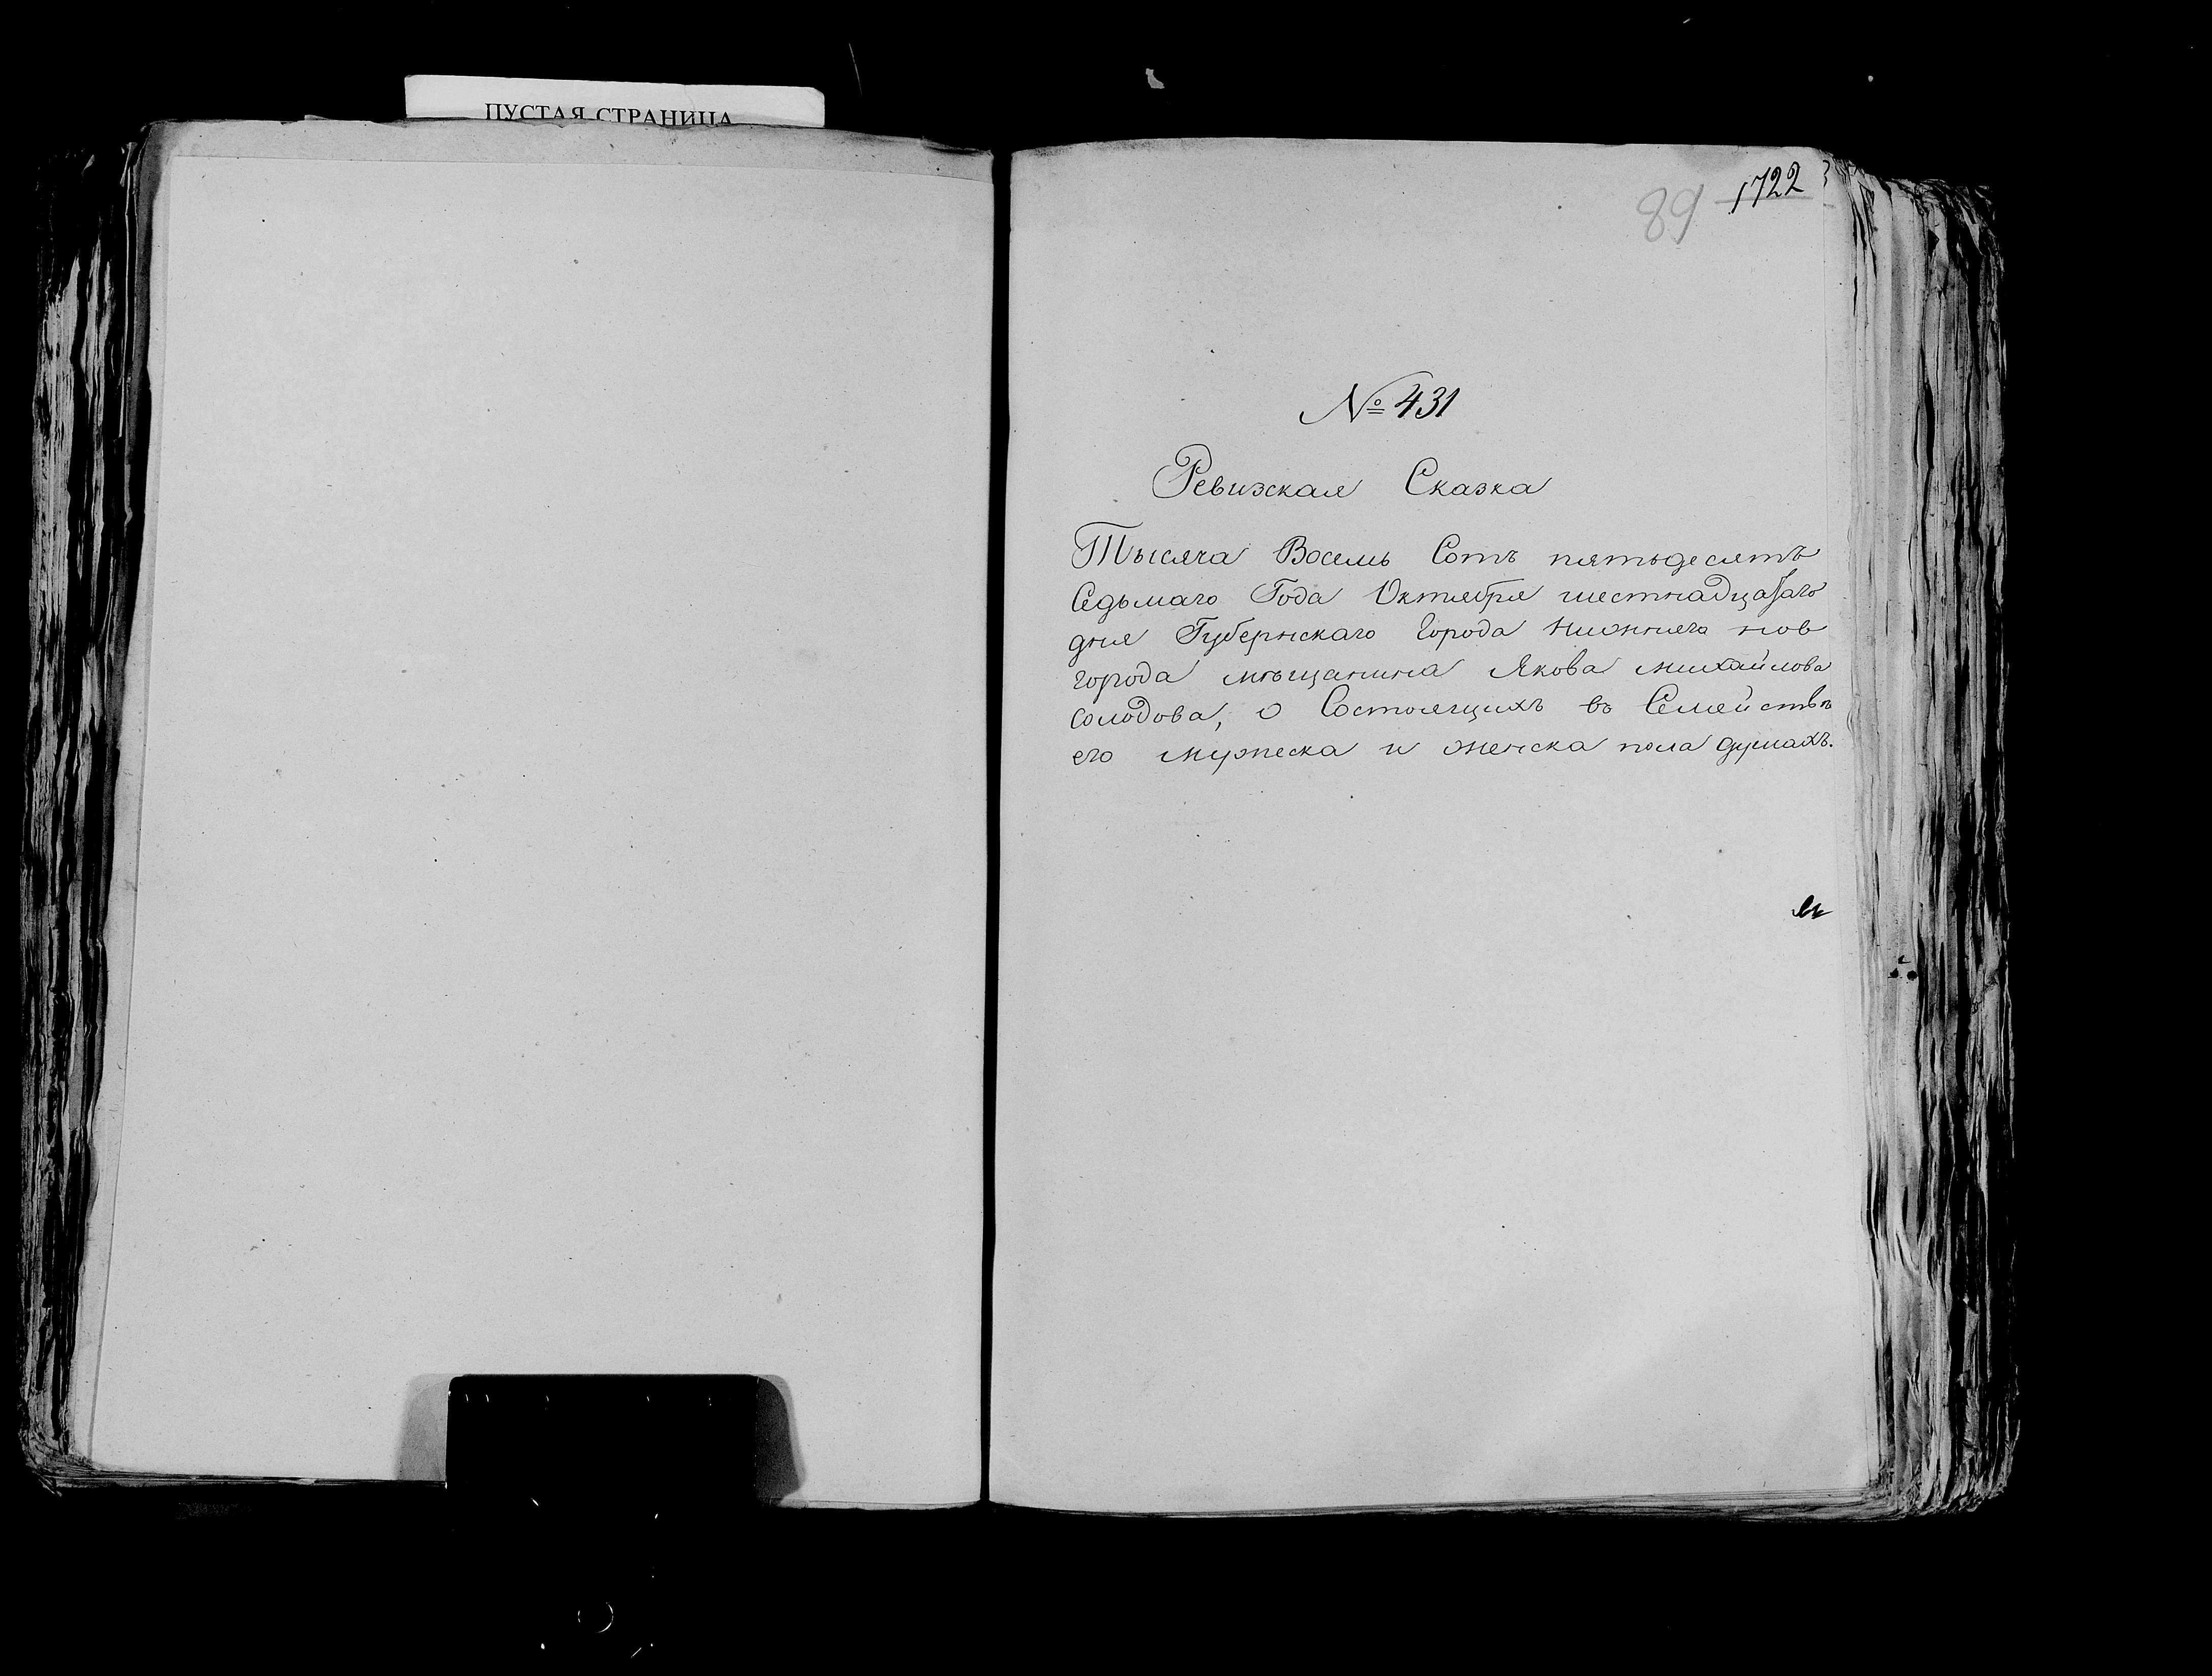 ПУСТАЯ СТРАНИЦА
1722
89
№ 431
Ревизская Сказка
Тысяча Восемь Сотъ пятьдесятъ
Седьмаго Года Октября шестнадцатаго
дня Губернскаго Города Нижняго нов
города мѣщанина Якова михайлова
солодова, о Состоящихъ въ Семействѣ
его мужеска и женска пола душахъ.